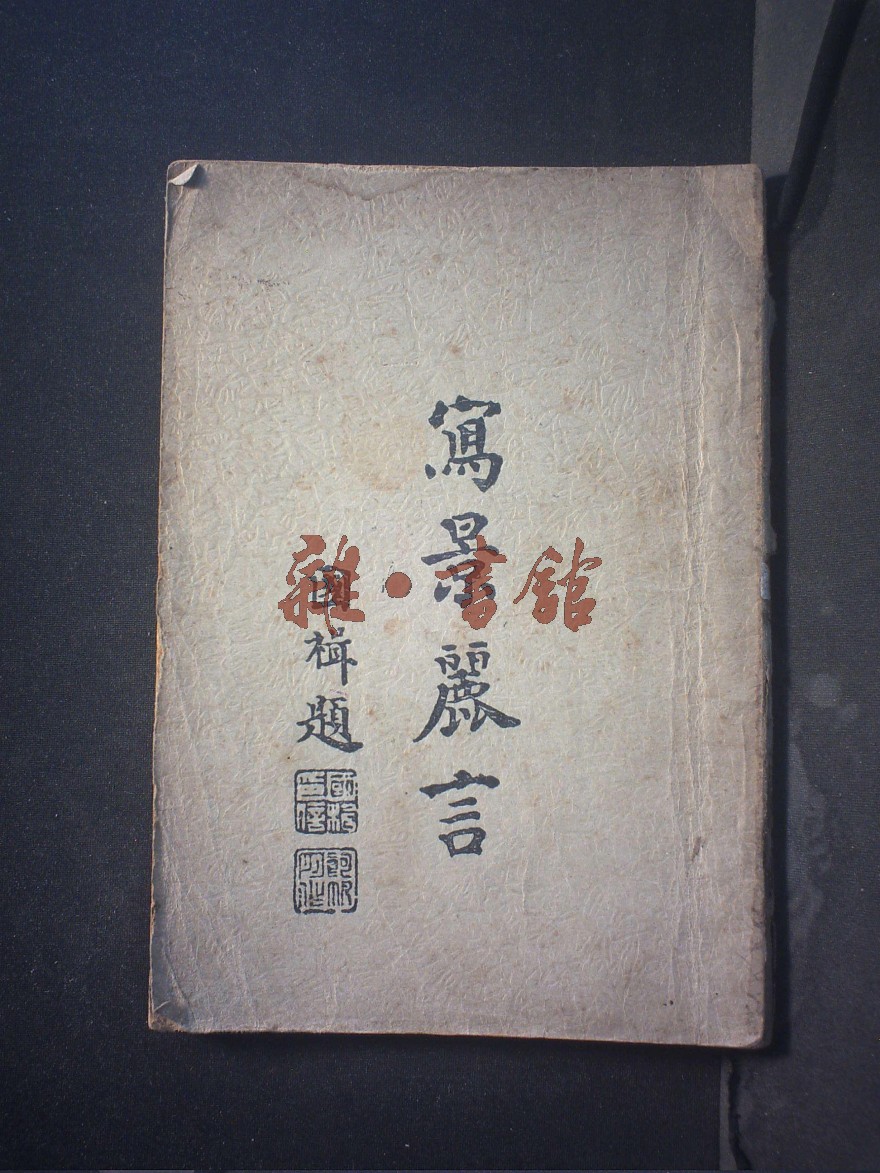 寫景麗言
國楫題
雜·書館